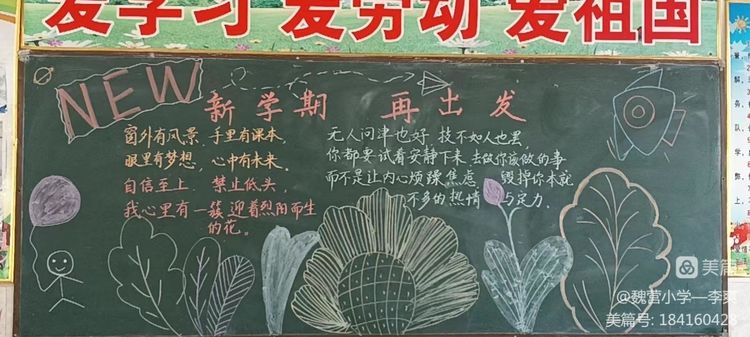 爱学习 爱劳动 爱祖国
NEW
新学期 再出发
窗外有风景,手里有课本,
眼里有梦想,心中有未来。
自信至上,禁止低头,
我心里有一簇迎着烈阳而生
的花。
无人问津也好,技不如人也罢,
你都要试着安静下来,去做你该做的事
而不是让内心烦躁焦虑 毁掉你本就
不多的热情与定力.
美篇
@魏营小学—李爽
美篇号: 184160428